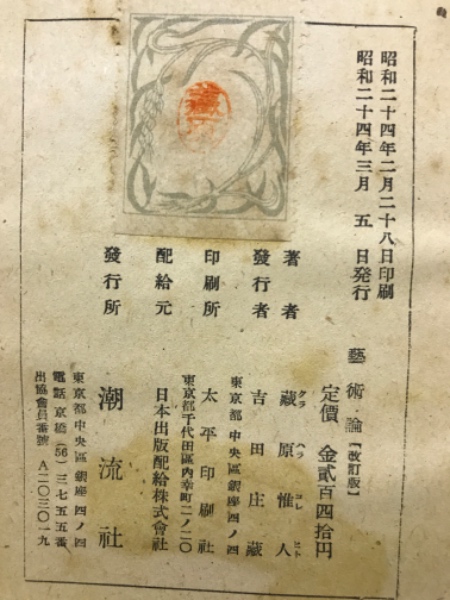 昭和二十四年二月二十八日印刷
昭和二十四年三月 五 日発行
藝術論【改訂版】
定價 金貳百四拾円
著者 藏原惟人
クラ ハラ コレ ヒト
發行者 吉田庄藏
東京都中央區銀座四ノ四
印刷所 太平印刷社
東京都千代田區内幸町二ノ二〇
配給元 日本出版配給株式會社
發行所 潮流社
東京都中央區銀座四ノ四
電話京橋(56)三七五五番
出協會員番號 A二〇三〇一九